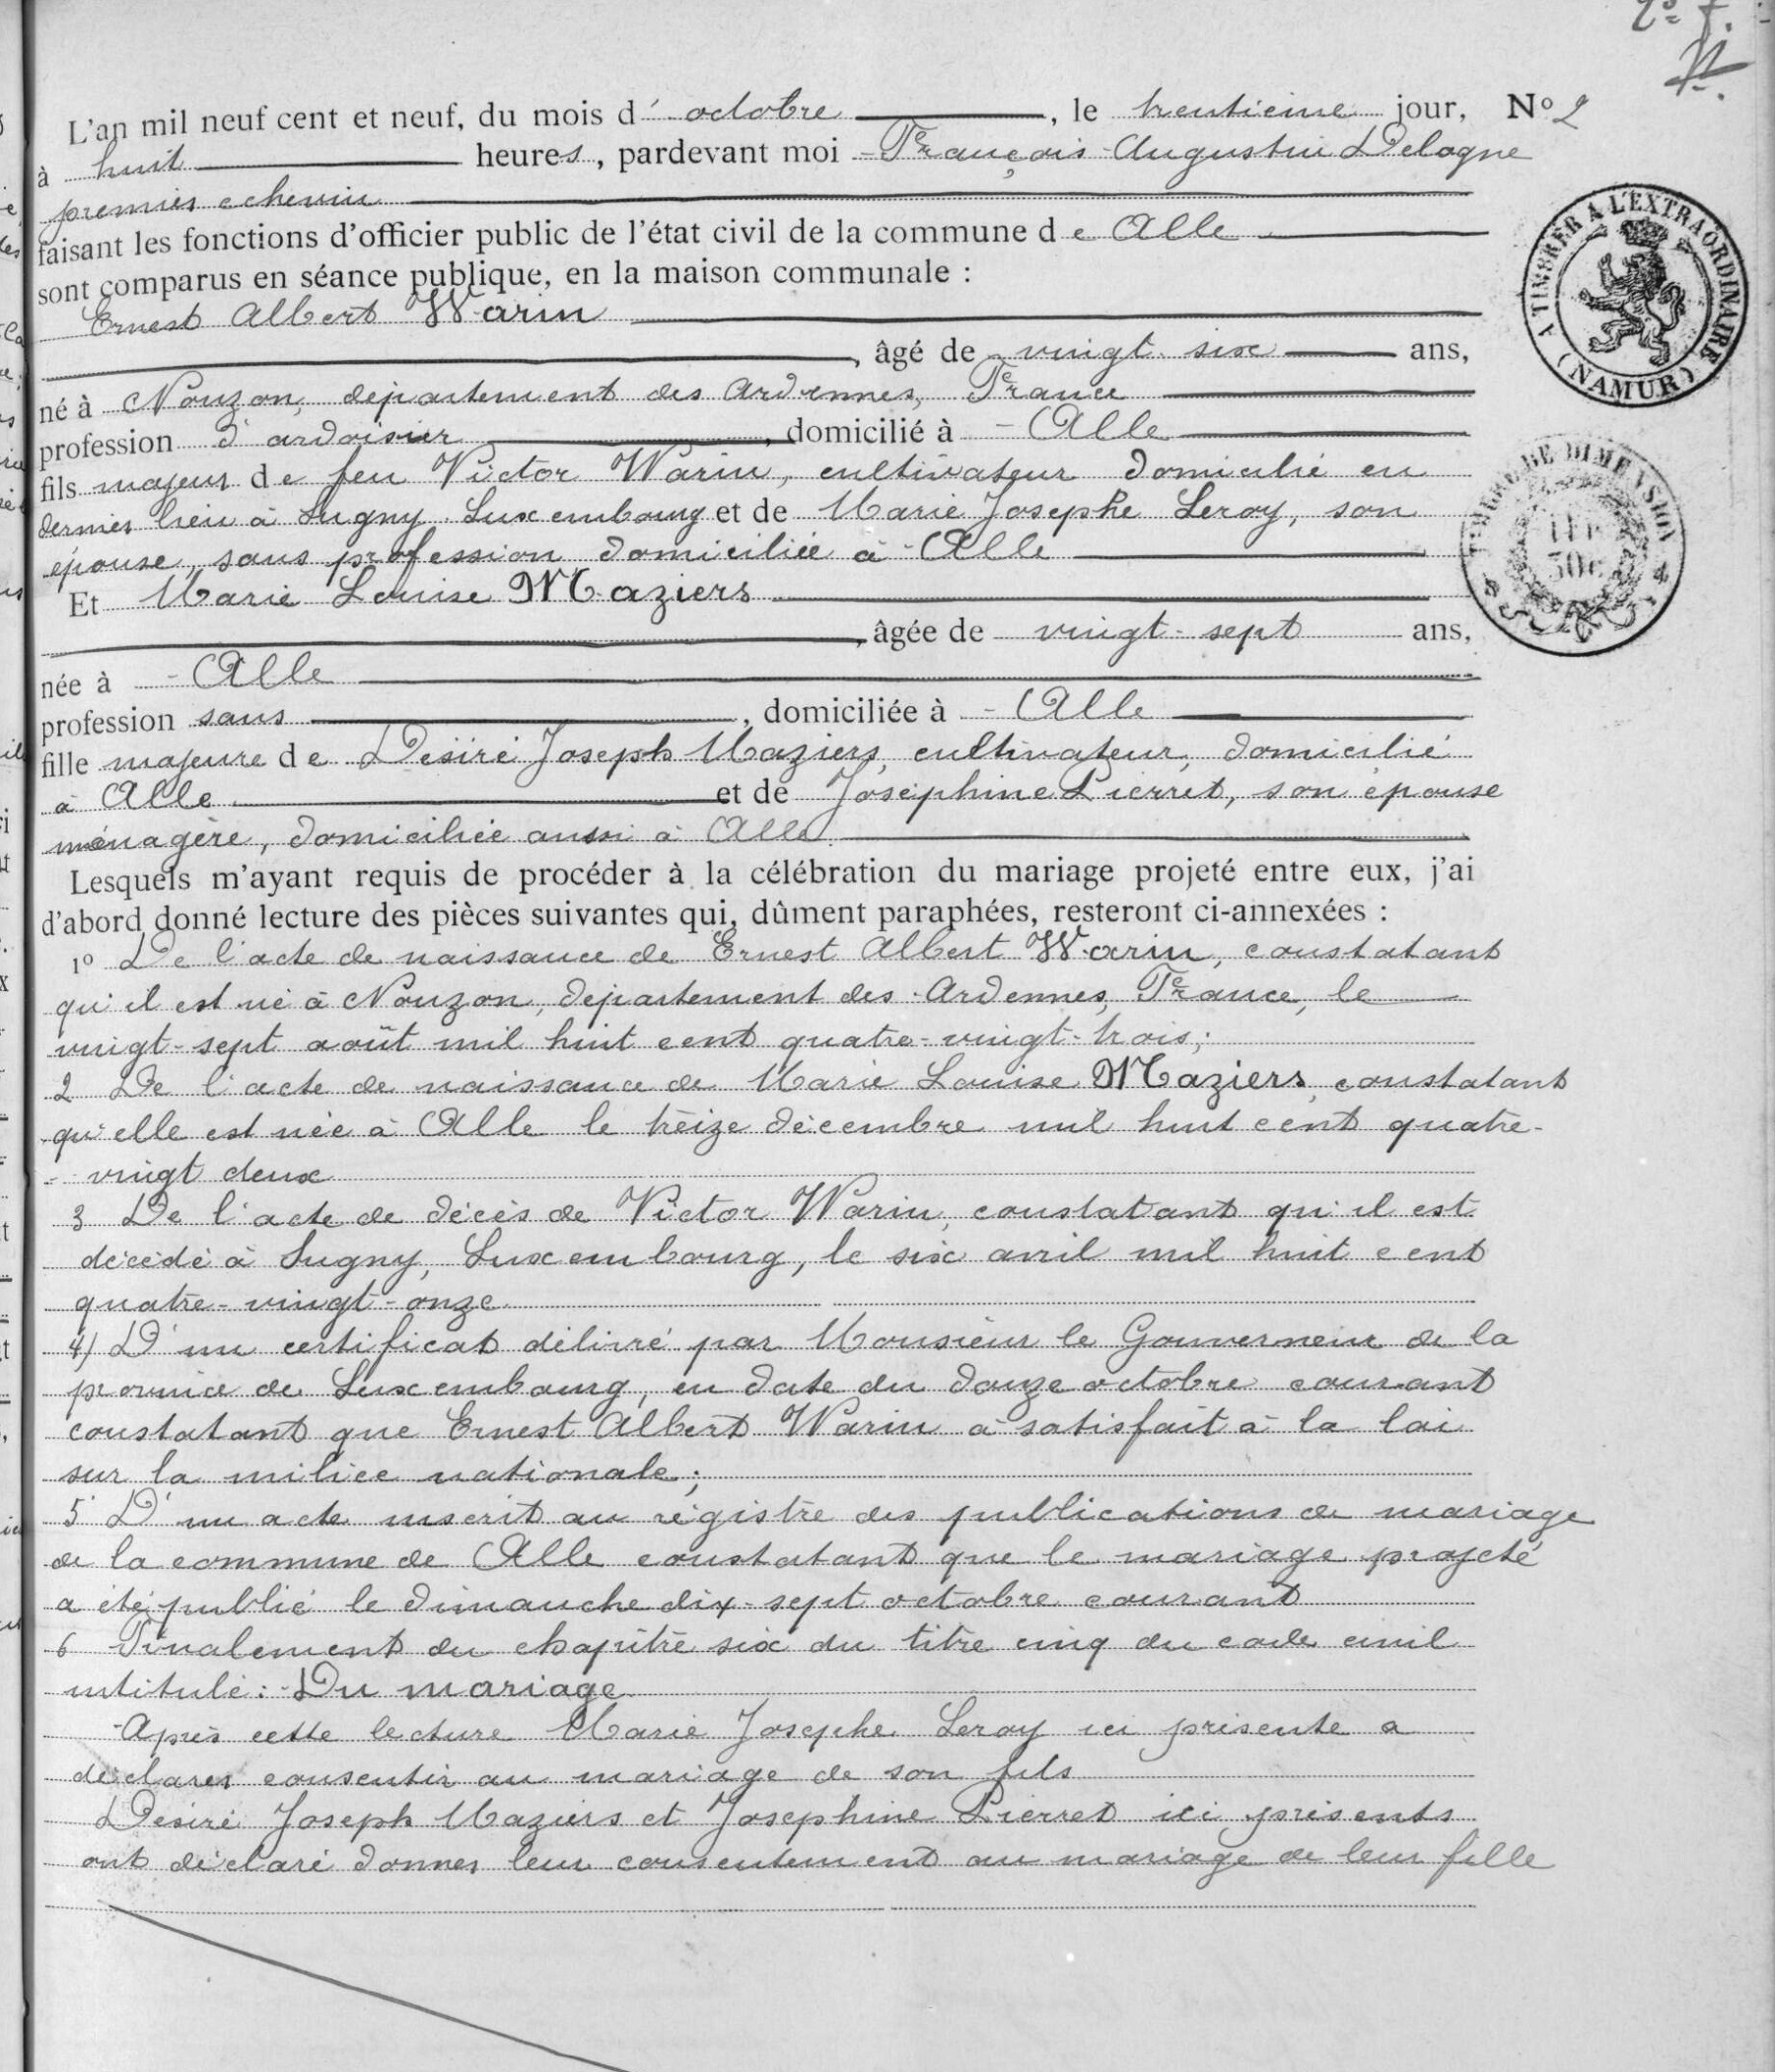 L'an mil neuf cent et neuf, du mois d' octobre, le trentième jour, N° 2
à huit heures, pardevant moi François Augustin Delogne
premier echevin
faisant les fonctions d'officier public de l'état civil de la commune de Alle
sont comparus en séance publique, en la maison communale :
Ernest Albert Warin
, âgé de vingt six ans,
né à Nouzon, département des Ardennes, France
profession d'ardoisier, domicilié à Alle
fils majeur de feu Victor Warin, cultivateur domicilié en
dernier lieu à Sugny, Luxembourg et de Marie Josephe Leroy, son
épouse, sans profession domiciliée à Alle
Et Marie Louise Maziers
, âgée de vingt-sept ans,
née à Alle
profession sans, domiciliée à Alle
fille majeure de Désiré Joseph Maziers, cultivateur, domicilié
à Alle et de Joséphine Pierret, son épouse
ménagère, domiciliée aussi à Alle
Lesquels m'ayant requis de procéder à la célébration du mariage projeté entre eux, j'ai
d'abord donné lecture des pièces suivantes qui, dûment paraphées, resteront ci-annexées :
1° De l'acte de naissance de Ernest Albert Warin, constatant
qu'il est né à Nouzon, département des Ardennes, France, le
vingt-sept août mil huit cent quatre-vingt-trois;
2 De l'acte de naissance de Marie Louise Maziers, constatant
qu'elle est née à Alle le treize décembre mil huit cent quatre-
- vingt deux
3 De l'acte de décès de Victor Warin, constatant qu'il est
décédé à Sugny, Luxembourg, le six avril mil huit cent
quatre-vingt-onze
4) D'un certificat délivré par Monsieur le Gouverneur de la
province de Luxembourg, en date du douze octobre courant
constatant que Ernest Albert Warin a satisfait à la loi
sur la milice nationale;
5 D'un acte inscrit au régistre des publications de mariage
de la commune de Alle constatant que le mariage projeté
a été publié le dimanche dix-sept octobre courant
6 Finalement du chapitre six du titre cinq du code civil
intitulé: Du mariage
Après cette lecture Marie Josephe Leroy ici présente a
déclarer consentir au mariage de son fils
Désiré Joseph Maziers et Josephine Pierret ici présents
ont déclaré donner leur consentement au mariage de leur fille
A TIMBRER A L'EXTRAORDINAIRE
(NAMUR)
TIMBRE DE DIMENSION